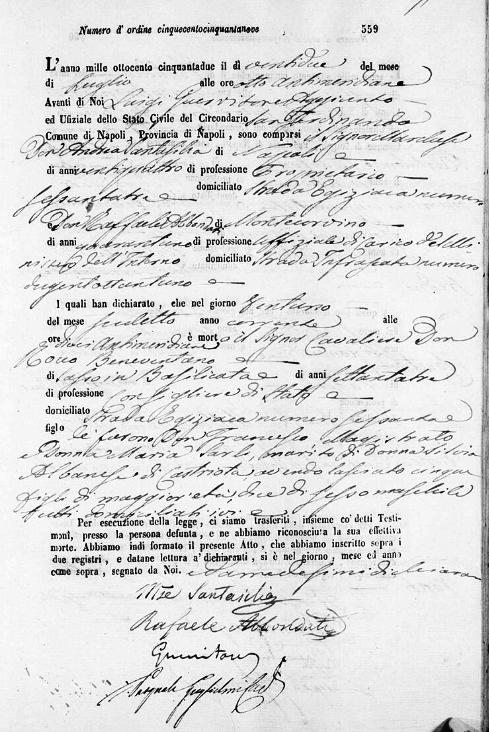 Numero d' ordine cinquecentocinquantanove 559
L'anno mille ottocento cinquantadue il dì ventidue del mese
di Luglio alle ore otto antimeridiane
Avanti di Noi Luigi Aggiunto
ed Uffiziale dello Stato Civile del Circondario San Ferdinando
Comune di Napoli, Provincia di Napoli, sono comparsi il Signor Marchese
Don Andrea Santasilia di Napoli
di anni ventiquattro di professione Proprietario
domiciliato Strada Egiziaca numero
sessantatre
Don Raffaele di
di anni quarantuno di professione Uffiziale di carico del Mi
nistero dell'Interno domiciliato Strada Infrascata numero
dugentottantuno
I quali han dichiarato, che nel giorno Ventuno
del mese suddetto anno corrente alle
ore Dieci Antimeridiane è morto il Signor Cavaliere Don
Rocco Beneventano
di Sasso in Basilicata di anni settantatre
di professione Consigliere di Stato
domiciliato Strada Egiziaca numero sessanta e
figlo Don Francesco, Magistrato
e Donna Maria marito di Donna Silvia
Albanese di Castriota, avendo lasciato cinque
figli di maggior età, due di sesso maschile
tutti domiciliati ivi
Per esecuzione della legge, ci siamo trasferiti, insieme co' detti Testi-
moni, presso la persona defunta, e ne abbiamo riconosciuta la sua effettiva
morte. Abbiamo indi formato il presente Atto, che abbiamo inscritto sopra i
due registri, e datane lettura a' dichiaranti, si è nel giorno, mese ed anno
come sopra, segnato da Noi. e da medesimi dichiaranti
Santasilia
Rafaele
Pasquale Guglielmi